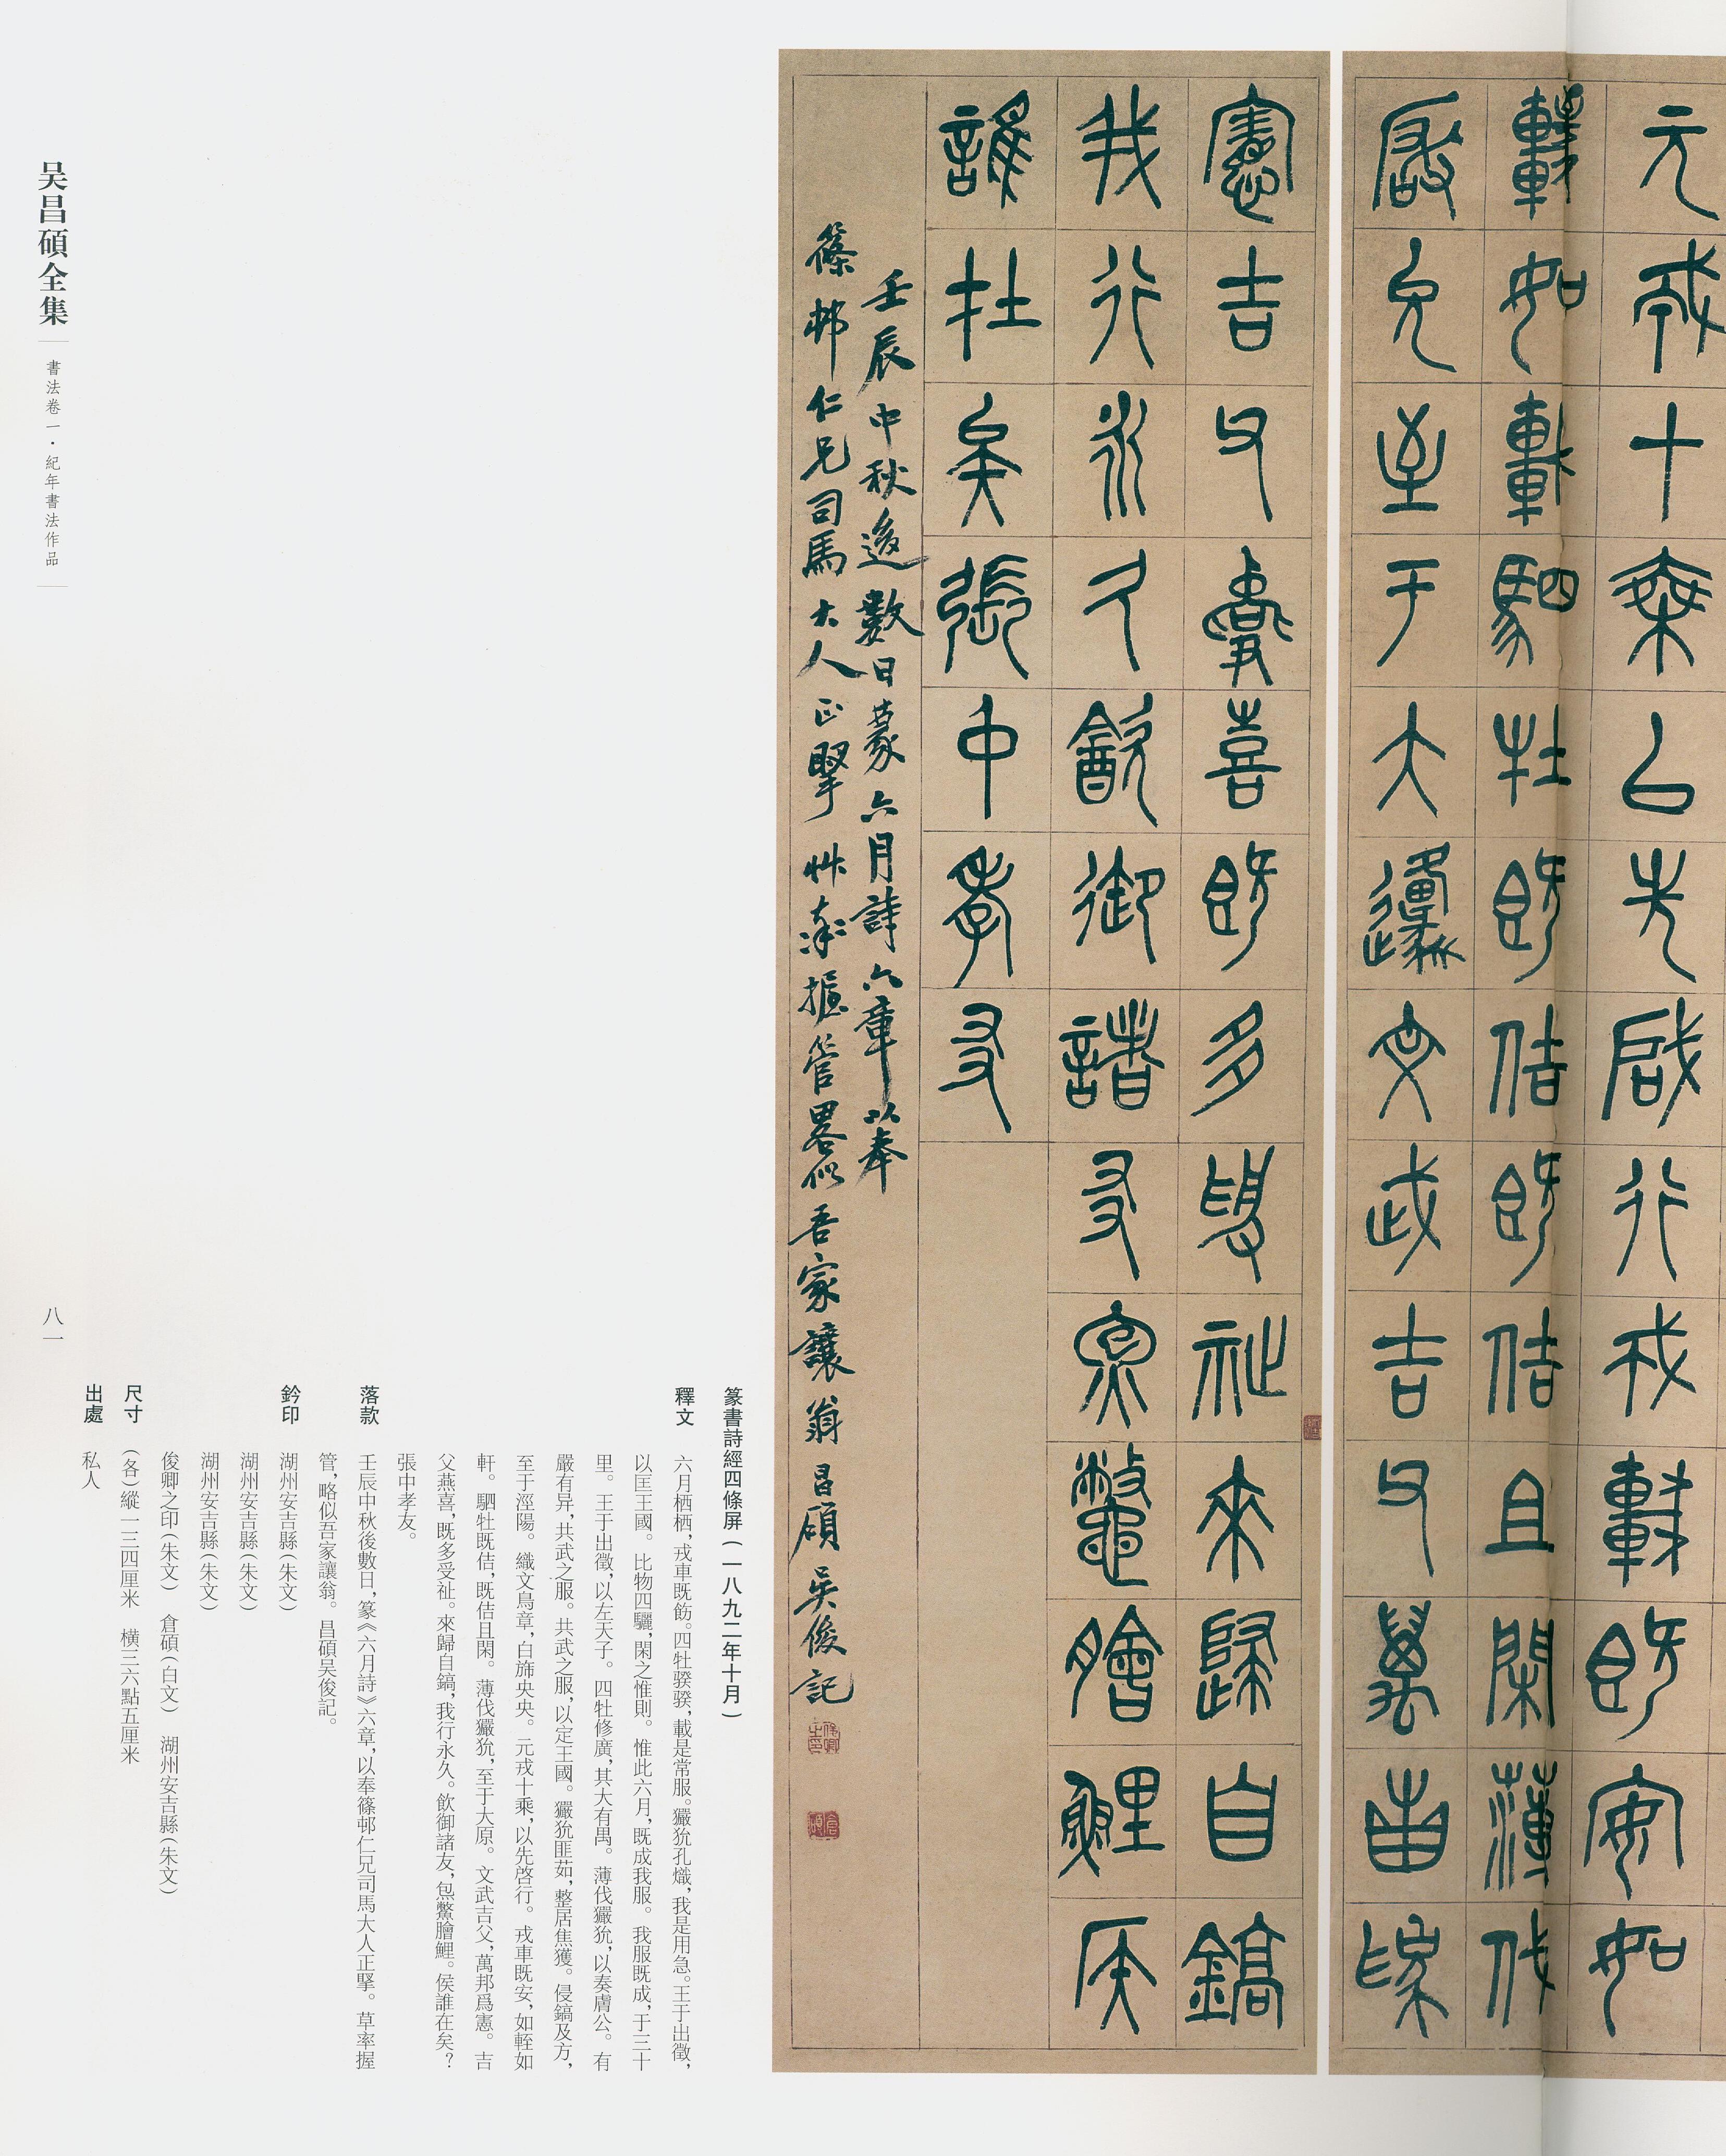 元戎十乘以先啓行戎車既安如
輊如軒駟牡既佶既佶且閑薄伐
玁狁至于大原文武吉父萬邦爲
憲吉父燕喜既多受祉來歸自鎬
我行永久飲御諸友炰鱉膾鯉侯
誰在矣張中孝友
壬辰中秋後數日篆六月詩六章以奉
篠邨仁兄司馬大人正擥艸率握管畧似吾家讓翁昌碩吴俊記
俊卿之印
倉碩
篆書詩經四條屏(一八九二年十月)
釋文 六月栖栖,戎車既飭。四牡骙骙,載是常服。玁狁孔熾,我是用急。王于出徵,
以匡王國。比物四驪,閑之惟則。惟此六月,既成我服。我服既成,于三十
里。王于出徵,以左天子。四牡修廣,其大有禺。薄伐玁狁,以奏膚公。有
嚴有异,共武之服。共武之服,以定王國。玁狁匪茹,整居焦獲。侵鎬及方,
至于涇陽。織文鳥章,白旆央央。元戎十乘,以先啓行。戎車既安,如輊如
軒。駟牡既佶,既佶且閑。薄伐玁狁,至于大原。文武吉父,萬邦爲憲。吉
父燕喜,既多受祉。來歸自鎬,我行永久。飲御諸友,炰鱉膾鯉。侯誰在矣?
張中孝友。
落款 壬辰中秋後數日,篆《六月詩》六章,以奉篠邨仁兄司馬大人正擥。草率握
管,略似吾家讓翁。昌碩吴俊記。
鈐印 湖州安吉縣(朱文)
湖州安吉縣(朱文)
湖州安吉縣(朱文)
俊卿之印(朱文) 倉碩(白文) 湖州安吉縣(朱文)
尺寸 (各)縱一三四厘米 橫三六點五厘米
出處 私人
吴昌碩全集
書法卷一·紀年書法作品
八一